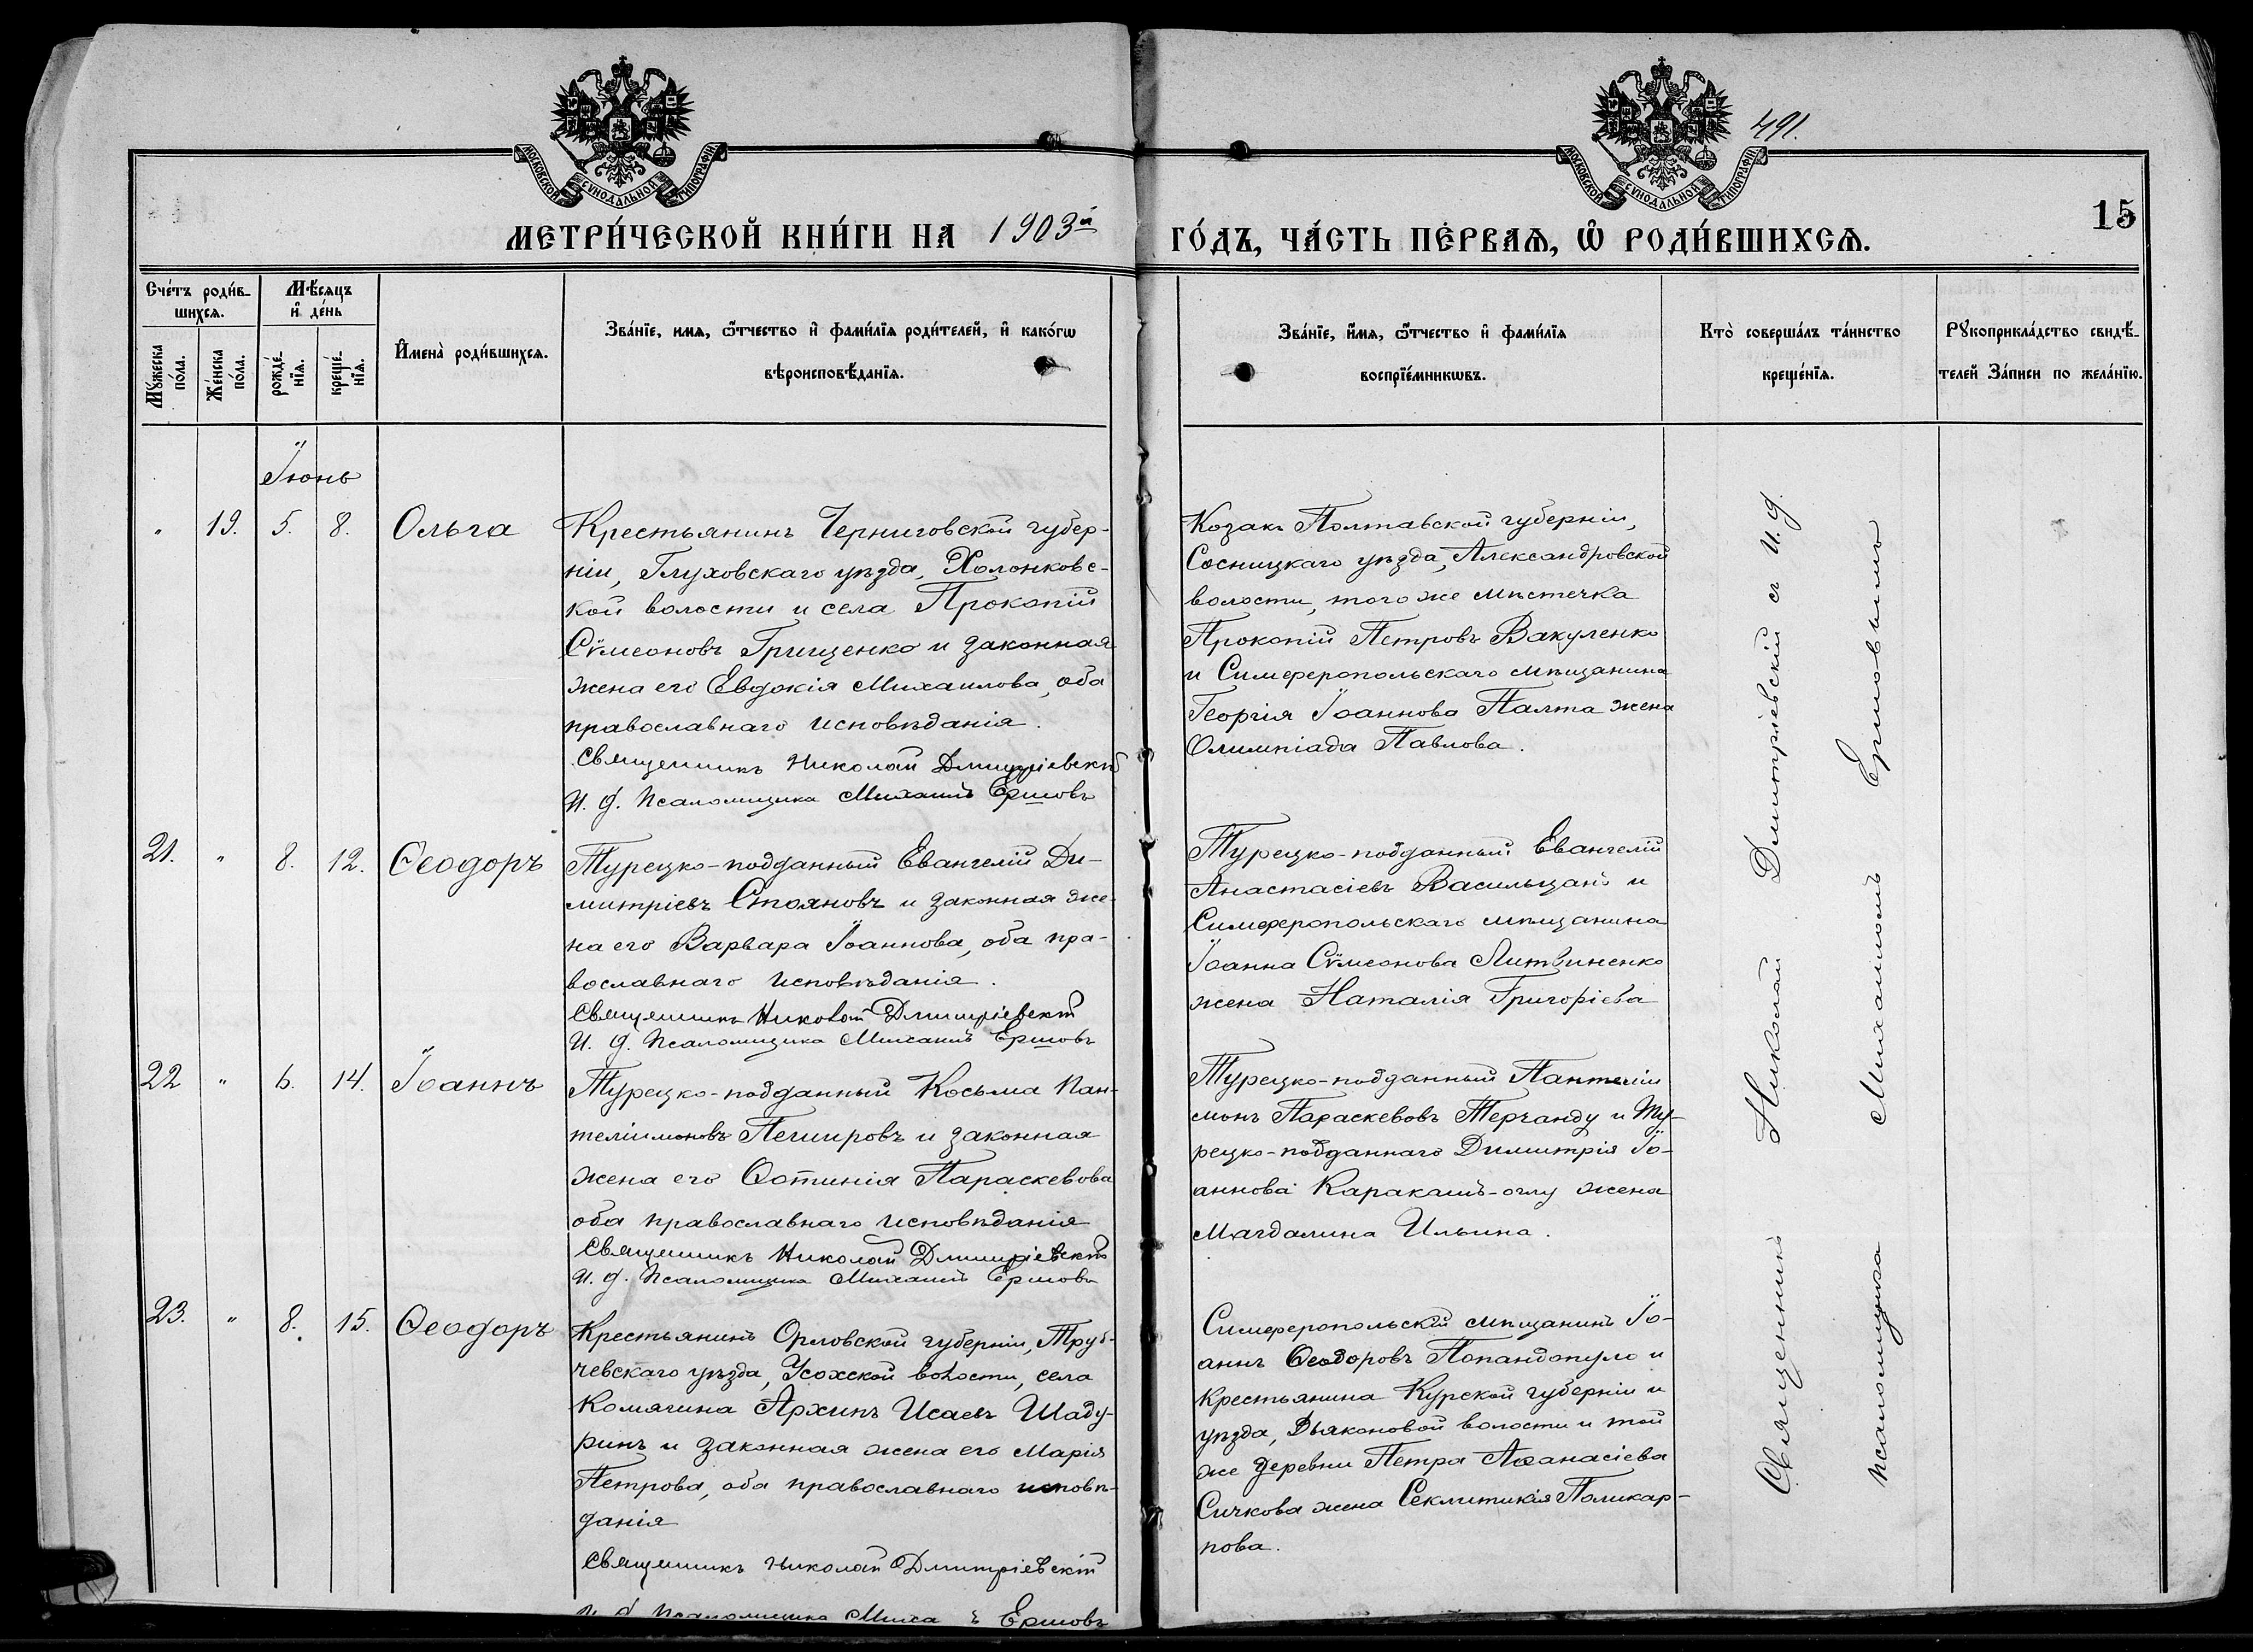 491.
МОСКОВСКОЙ СѴНОДАЛЬНОЙ ТИПОГРАФІИ
МОСКОВСКОЙ СѴНОДАЛЬНОЙ ТИПОГРАФІИ
15
МЕТРИ́ЧЕСКОЙ КНИ́ГИ НА 1903й
ГО́ДЪ, ЧА́СТЬ ПЕ́РВАѦ, Ѡ҆ РОДИ́ВШИХСѦ.
Счéтъ роди́в-
шихсѧ.
Мꙋ́жеска по́ла.
Же́нска по́ла.
Мѣ́сѧцъ
и҆ де́нь
рождé-
нїѧ.
крещé-
нїѧ.
И҆менà роди́вшихсѧ.
Зва́нїе, имѧ, ѻ҆́тчество и҆ фами́лїѧ роди́телей, и҆ како́гѡ
вѣроисповѣ́данїѧ.
Зва́нїе, и҆́мѧ, ѻ҆́тчество и҆ фами́лїѧ
воспрїе́мникѡвъ.
Кто̀ совершáлъ тáинство
крещéнїѧ.
Рꙋкоприклáдство свидѣ́-
телей За́писи по желáнїю.
Іюнь
" 19. 5. 8. Ольга
Крестьянинъ Черниговской губер-
ніи, Глуховскаго уѣзда, Холонковс-
кой волости и села Прокопій
Сѵмеоновъ Грищенко и законная
жена его Евдокія Михаилова, оба
православнаго исповѣданія.
Священникъ Николай Дмитріевскій
И. д. Псаломщика Михаилъ Ершовъ
Козакъ Полтавской губерніи,
Сосницкаго уѣзда, Александровской
волости, того же мѣстечка
Прокопій Петровъ Вакуленко
и Симферопольскаго мѣщанина
Георгія Іоаннова Палта жена
Олимпіада Павлова.
21. " 8. 12. Ѳеодоръ
Турецко-подданный Евангелій Ди-
митріевъ Стояновъ и законная же-
на его Варвара Іоаннова, оба пра-
вославнаго исповѣданія.
Священникъ Николай Дмитріевскій
И. д. Псаломщика Михаилъ Ершовъ
Турецко-подданный Евангелій
Анастасіевъ Васильцанъ и
Симферопольскаго мѣщанина
Іоанна Сѵмеонова Литвиненко
жена Наталія Григоріева
22 " 6. 14. Іоаннъ
Турецко-подданный Косьма Пан-
теліимоновъ Пешировъ и законная
жена его Ѳотинія Параскевова
оба православнаго исповѣданія
Священникъ Николай Дмитріевскій
И. д. Псаломщика Михаилъ Ершовъ
Турецко-подданный Пантеліи
монъ Параскевовъ Терчанду и Ту-
рецко-подданнаго Димитрія Іо-
аннова Каракашъ-оглу жена
Магдалина Ильина.
23. " 8. 15. Ѳеодоръ
Крестьянинъ Орловской губерніи, Труб-
чевскаго уѣзда, Усохской волости, села
Комягина Архипъ Исаевъ Шаду-
ринъ и законная жена его Марія
Петрова, оба православнаго исповѣ-
данія
Священникъ Николай Дмитріевскій
И. д. Псаломщика Миха ъ Ершовъ
Симферопольскій мѣщанинъ Іо-
аннъ Ѳеодоровъ Попандопуло и
крестьянина Курской губерніи и
уѣзда, Дьяконовой волости и той
же деревни Петра Аѳанасіева
Сичкова жена Секлитикія Поликар-
пова.
Священникъ Николай Дмитріевскій съ И. д.
псаломщика Михаиломъ Ершовымъ